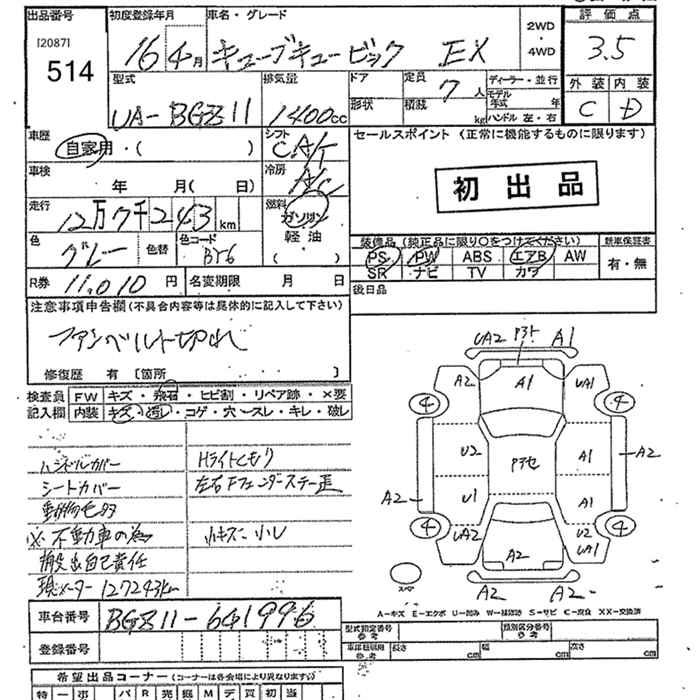 出品番号 初度登録年月 車名・グレード 2WD ・ 4WD 評価点
[2087]
514
16年4月 キューブキュービック EX 3.5
型式 排気量 ドア 定員 ディーラー・並行 外装 内装
UA-BGZ11 1400cc 7人 モデル年式 年 C D
形状 積載 kg ハンドル 左・右
車歴 自家用・( ) シフト CAT セールスポイント (正常に機能するものに限ります)
車検 年 月( 日) 冷房 AC
初出品
走行 12万7千243km 燃料 ガソリン 軽油 ( )
色 グレー 色替 色コード
装備品 (純正品に限り○をつけてください) 新車保証書
PS PW ABS エアB AW 有・無
SR ナビ TV カワ
R券 11,010円 名変期限 月 日 後日品
注意事項申告欄(不具合内容等は具体的に記入して下さい)
ファンベルト切れ
修復歴 有 [箇所 ]
検査員記入欄 FW キズ・飛石・ヒビ割・リペア跡・×要
内装 キズ・汚レ・コゲ・穴・スレ・キレ・破レ
ハンドルカバー Hライトくもり
シートカバー 左右Fフェンダーステー歪
動物毛多
※ 不動車の為 小キズ・小レ
搬出自己責任
現メーター 127243km
車台番号 BGZ11-641996
登録番号
UA2 P3ト A1
A2 A1 UA1
4 4
U2 P3セ A1 A2
A2 U1 A1
4 4
UA2 U2 UA1
A2
スペア A2 A2
A-キズ E-エクボ U-凹み W-補修跡 S-サビ C-腐食 XX-交換済
型式指定番号 参考 類別区分番号 参考
長さ cm 幅 cm 高さ cm
希望出品コーナー (コーナーは各会場により異なります)
特 一 パ R 売 M デ 買 初 当